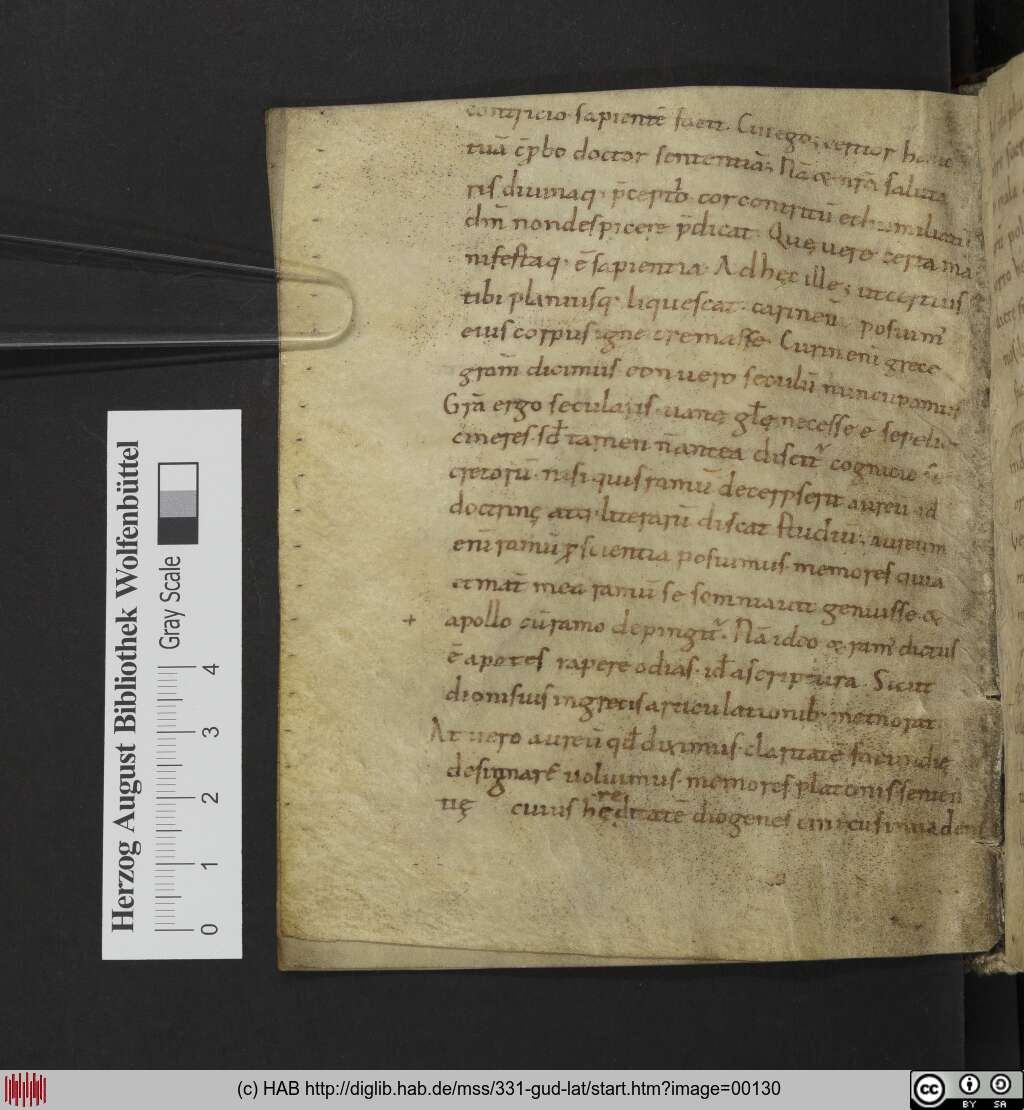 contricio· sapientē facit. Cui ego;
tuā cp̄bo doctor sententiā; Nā & nr̄a
ris diuinaq· p̄cepto cor contritū et humiliatū
dn̄i non despicere p̄dicat· Quę vero certa ma
nifestaq· ē sapientia· Ad hęc ille; ut certius
tibi planiusq· liquescat· posuim̄
eius corpus igne cremasse· grece
dicimus· vero seculū nuncupamus
Grā ergo secularis· uanę glę necesse ē sepeliri
cineres· sd̄ tamen n̄ antea discit̄ cognicio sē
cretorū· nisi quis ramū decerpserit aureū id
doctrinę atq· literarū discat studiū· aureum
eni ramū ꝓ scientia posuimus· memores quia
et mat̄ mea ramū se somniauit genuisse &
apollo cū ramo depingit̄· Nā ideo & ram̄ dictus
ē apotes rapsodias· id̄ a scriptura· Sicut
dionisius in grecis articulationib· memorat
At vero aureū qd̄ diximus· claritatē facundię
designarē uoluimus· memores platonis senten
tię cuius hęreditatē diogenes cinicus inuadens
+
Herzog August Bibliothek Wolfenbüttel
Gray Scale
0 1 2 3 4
(c) HAB http://diglib.hab.de/mss/331-gud-lat/start.htm?image=00130
cc BY SA